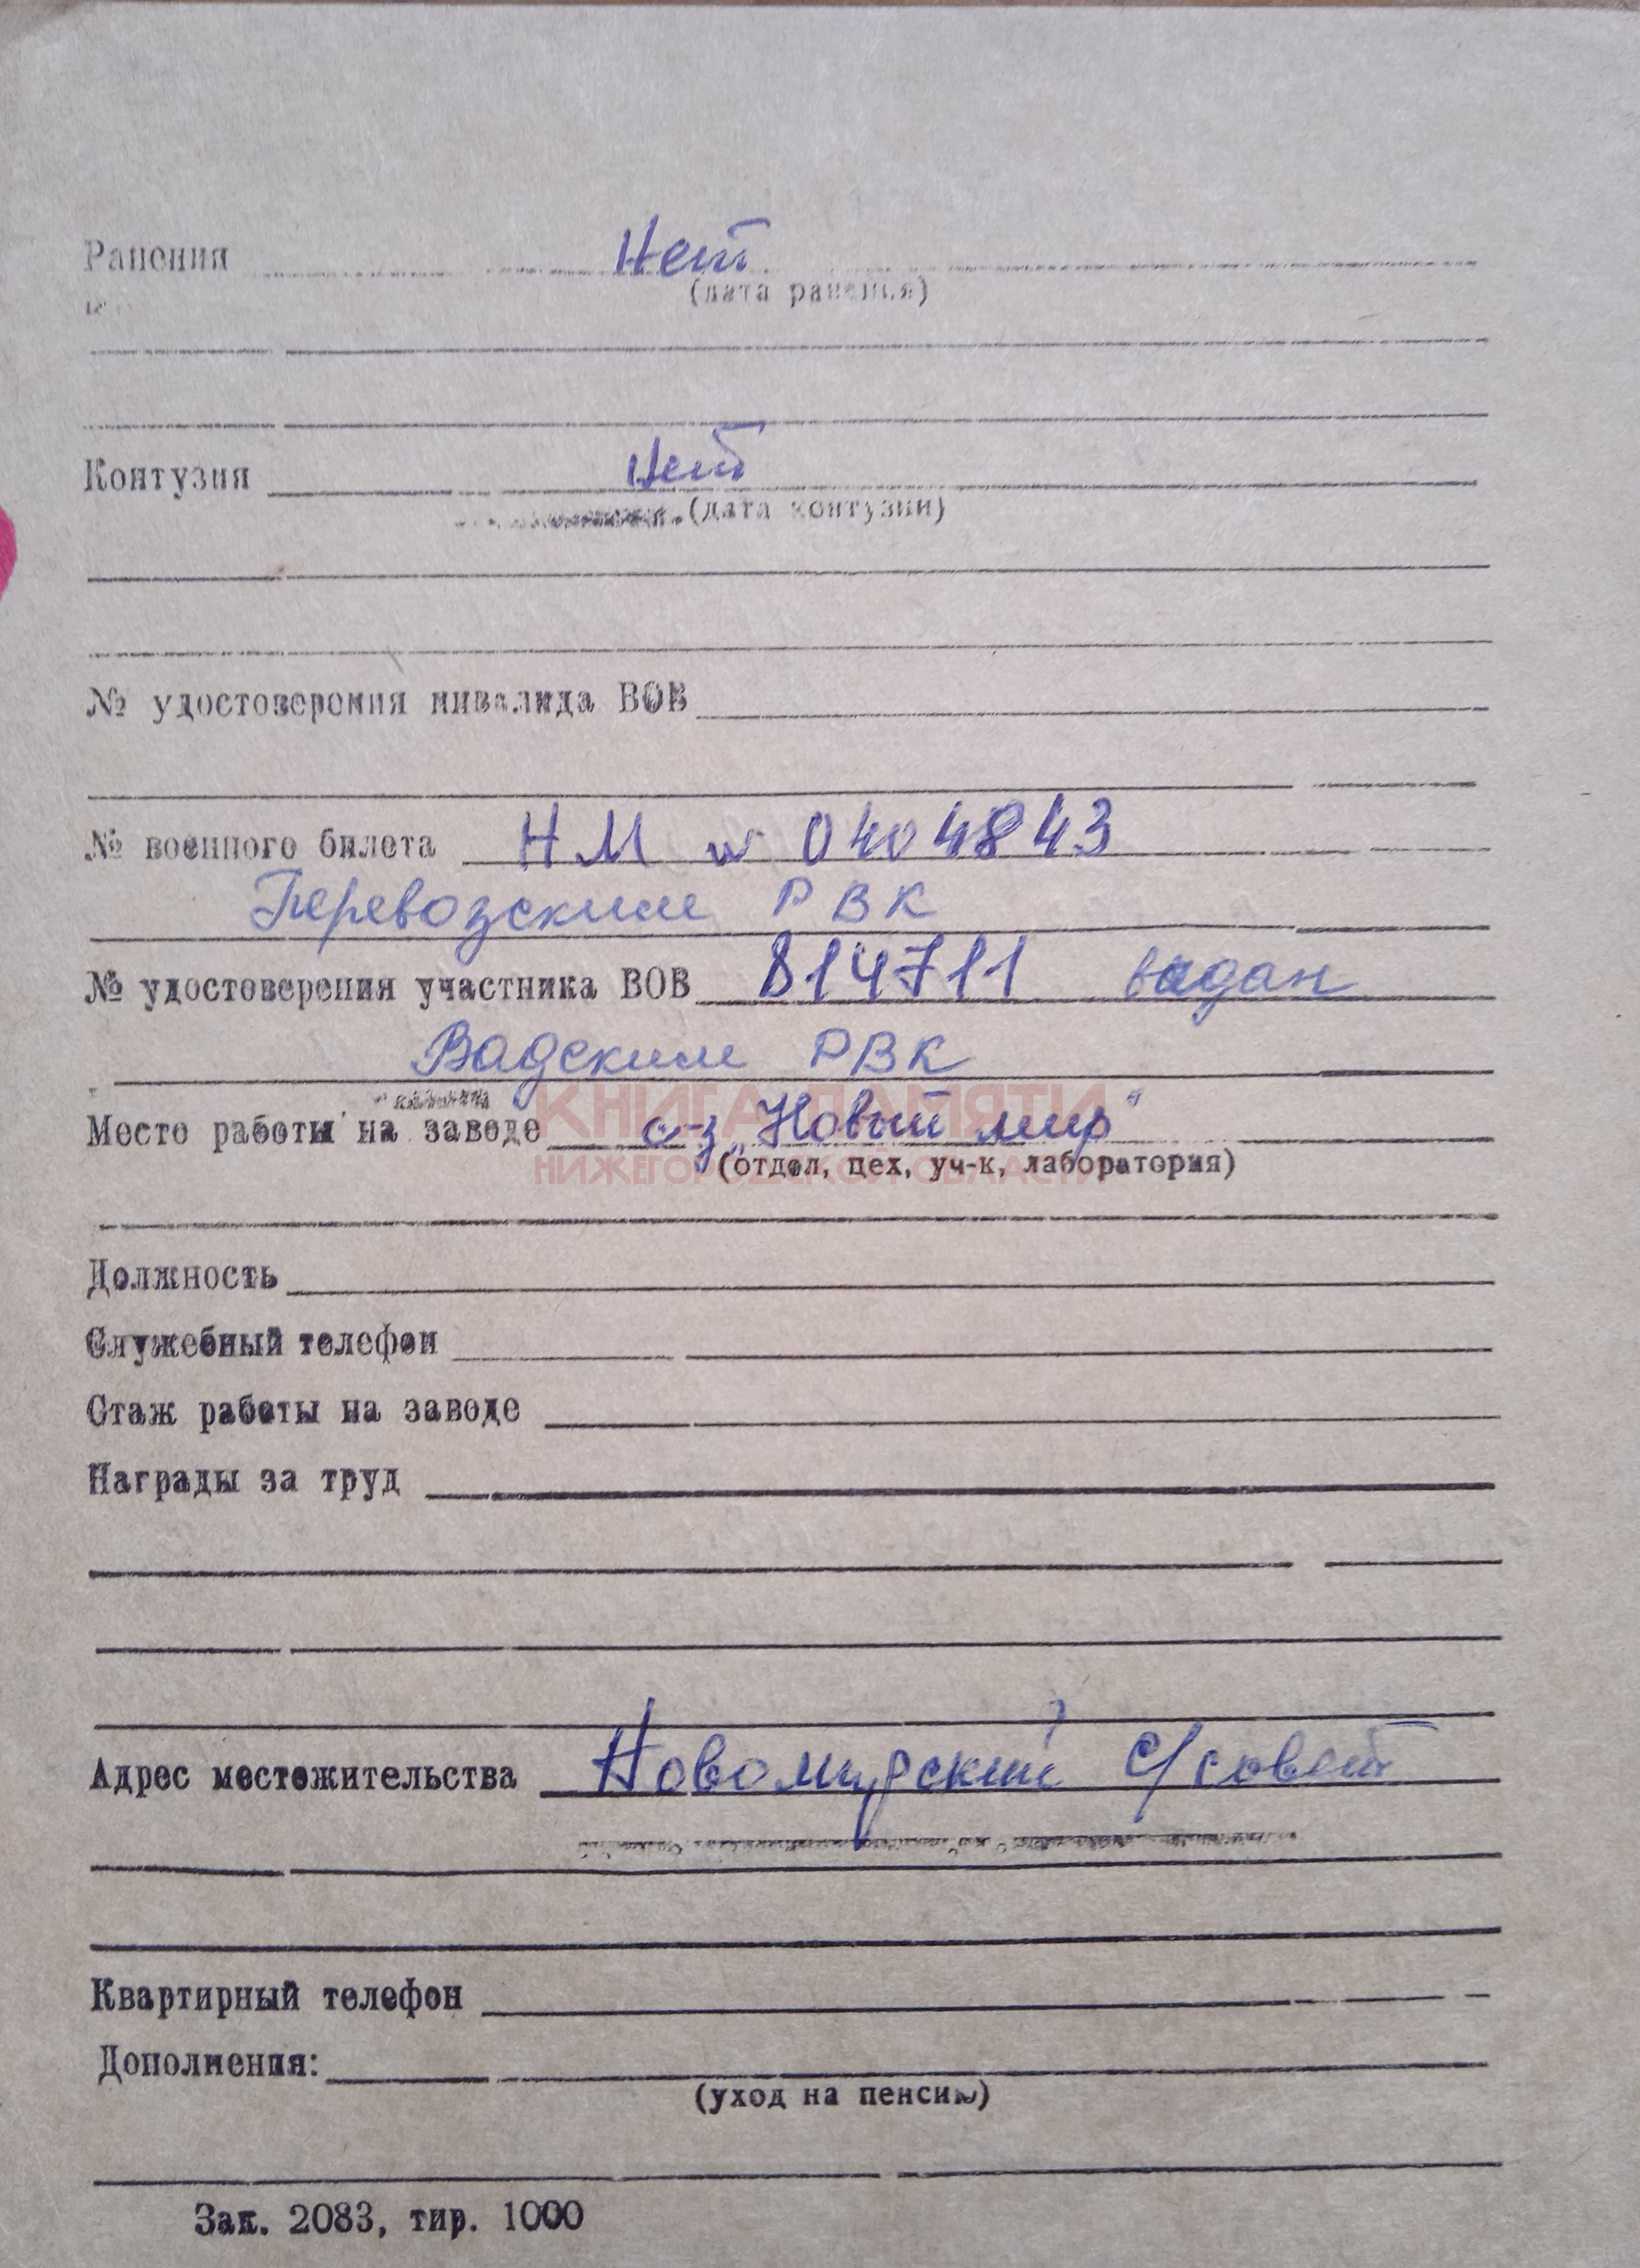 Ранения Нет
(дата ранения)
Контузия Нет
(дата контузии)
№ удостоверения инвалида ВОВ
№ военного билета НМ № 0404843
Перевозским РВК
№ удостоверения участника ВОВ 814711 выдан
Вадским РВК
КНИГА ПАМЯТИ
Место работы на заводе с-з „Новый мир“
НИЖЕГОРОДСКОЙ ОБЛАСТИ
(отдел, цех, уч-к, лаборатория)
Должность
Служебный телефон
Стаж работы на заводе
Награды за труд
Адрес местожительства Новомирский с/совет
Квартирный телефон
Дополнения:
(уход на пенсию)
Зак. 2083, тир. 1000